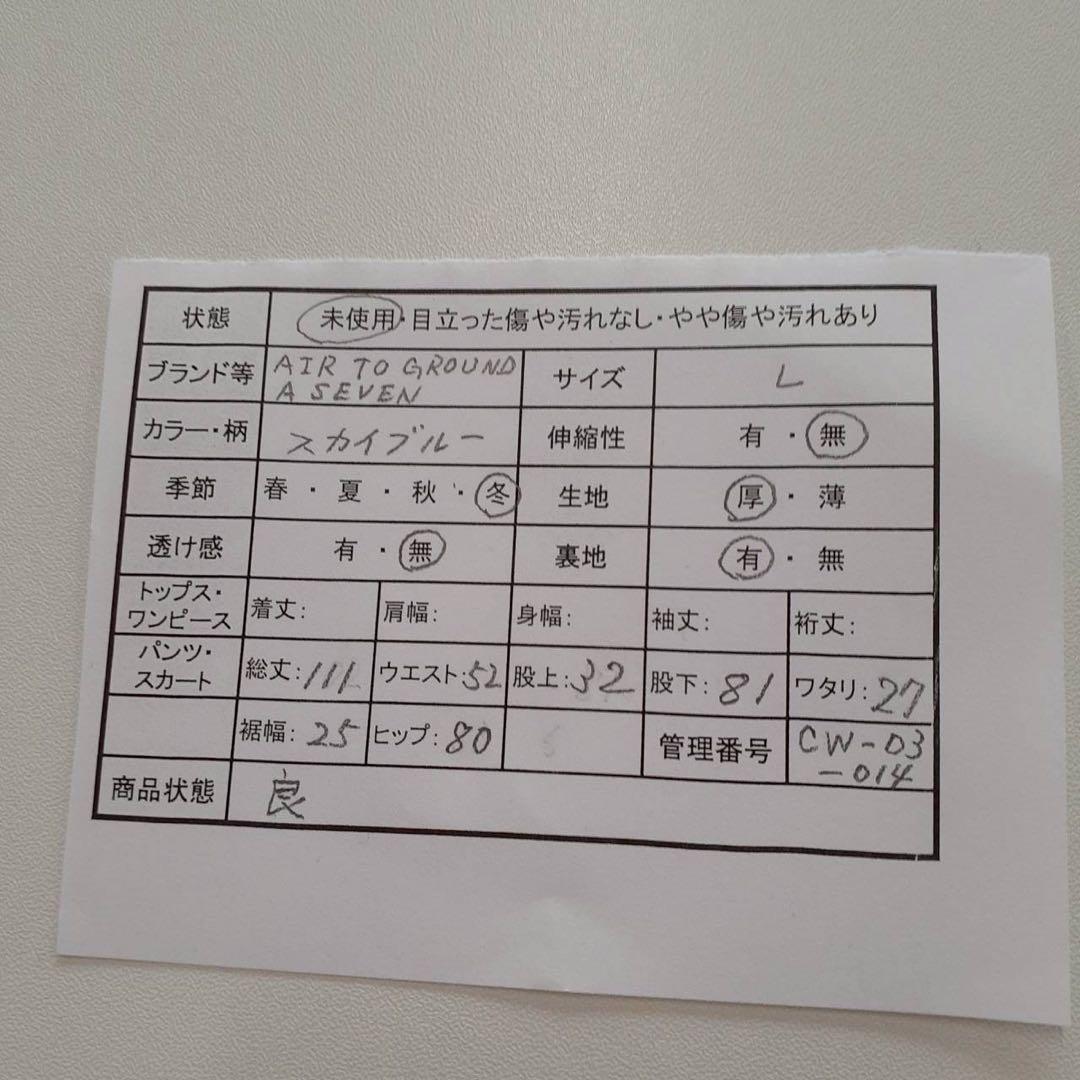 状態 未使用・目立った傷や汚れなし・やや傷や汚れあり
ブランド等 AIR TO GROUND サイズ L
A SEVEN
カラー・柄 スカイブルー 伸縮性 有・無
季節 春・夏・秋・冬 生地 厚・薄
透け感 有・無 裏地 有・無
トップス・
ワンピース 着丈: 肩幅: 身幅: 袖丈: 裄丈:
パンツ・
スカート 総丈:111 ウエスト:52 股上:32 股下:81 ワタリ:27
裾幅:25 ヒップ:80 管理番号 CW-03
-014
商品状態 良